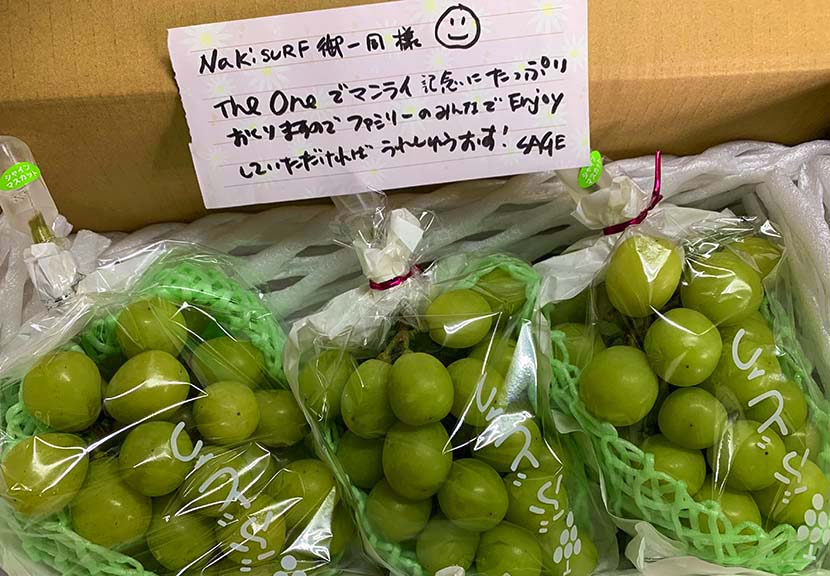 NaKiSURF 御一同様
The One でマンライ 記念にたっぷり
おくりますので ファミリーのみんなで Enjoy
していただければ うれしゅうおす! SAGE
シャイン
マスカット